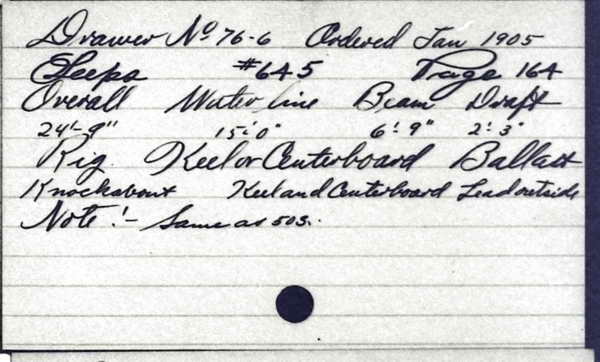 Drawer No 76-6 Ordered Jan 1905
Sleeps #645 Page 164
Overall Water line Beam Draft
24'-9" 15'-0" 6'-9" 2'-3"
Rig Keel or Centerboard Ballast
Knockabout Keel and Centerboard Lead outside
Note!- Same as 503.